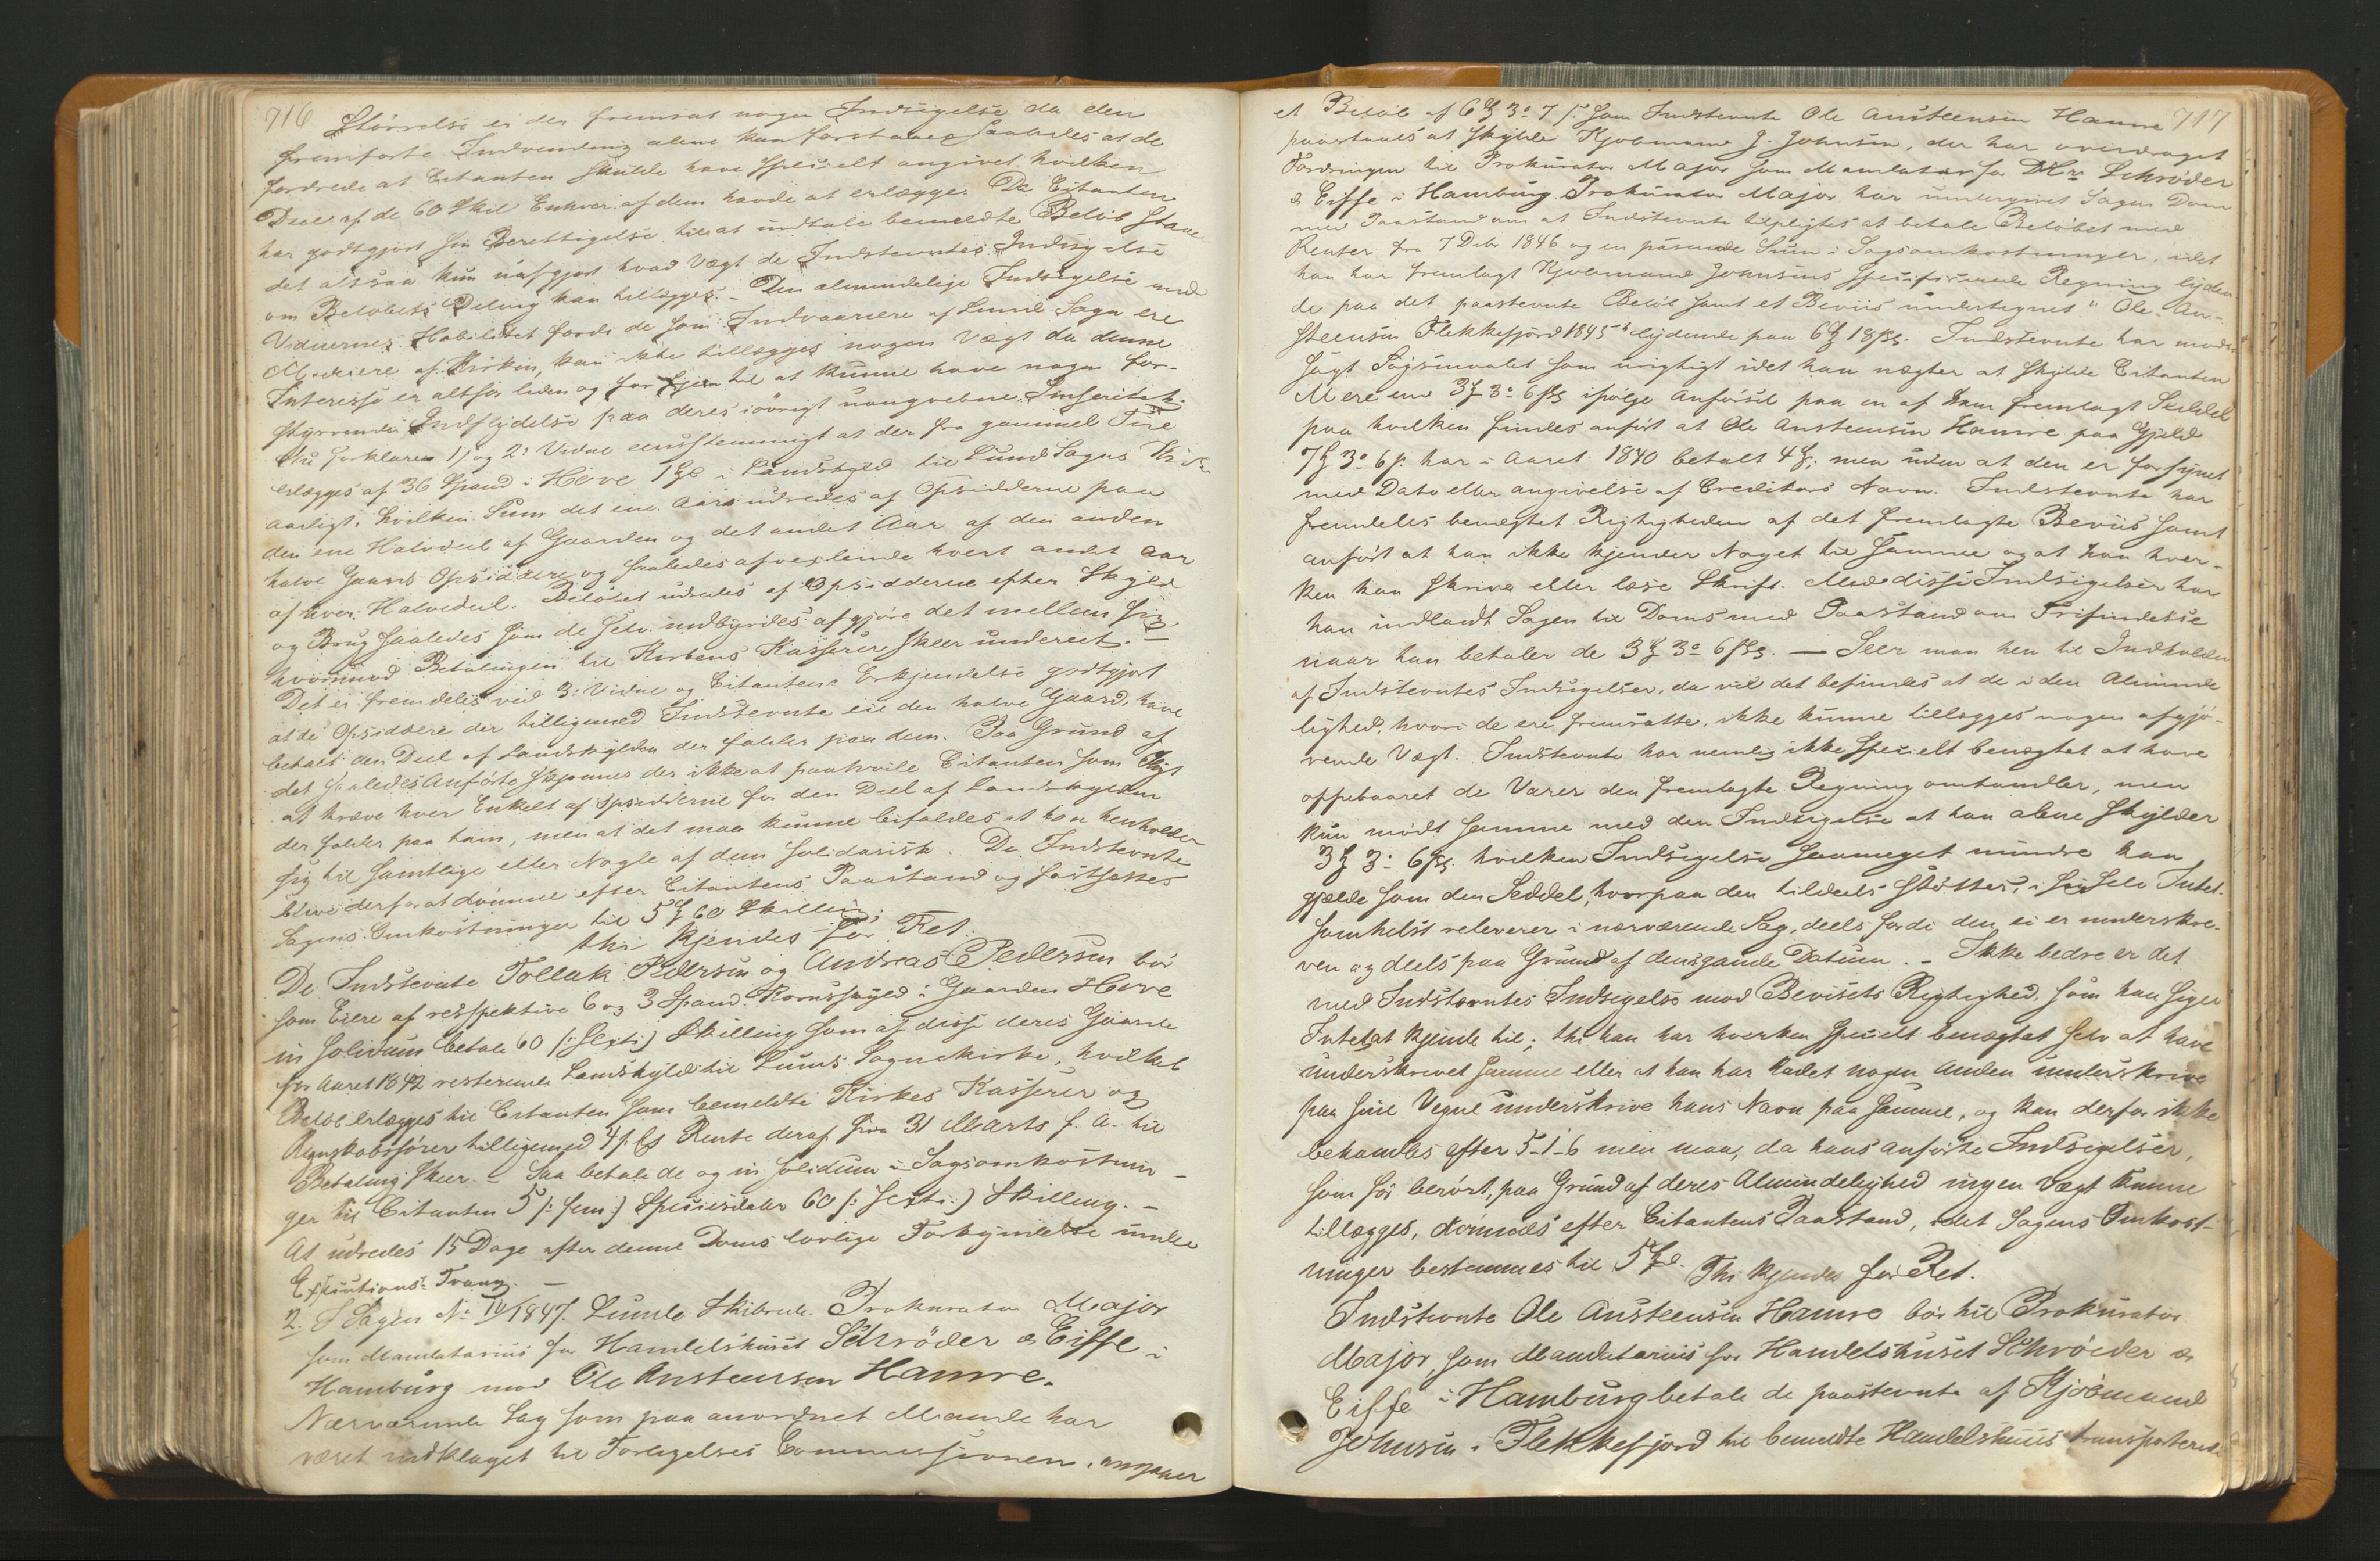 716
Størrelse er der fremsat nogen Indsigelse da den
fremførte Indvending alene kan forstaaes saaledes at de
fordrede at Citanten skulde have specielt angivet hvilken
Deel af de 60 Skil Enhver af dem havde at erlægge. Da Citanten
har godtgjort sin Berettigelse til at indtale bemeldte Beløb staaer
det altsaa kun uafgjort hvad Vægt de Indstevntes Indsigelse
om Beløbets Deling kan tillægges. - Den almindelige Indsigelse mod
Vidnernes Habilitet fordi de som Indvaanere af Lunde Sogn ere
Medeiere af Kirken, kan ikke tillægges nogen Vægt da denne
Interesse er altfor liden og for fjern til at kunne have nogen for-
styrrende Indflydelse paa deres iøvrigt uangrebne Sinceritet.
Nu forklarer 1; og 2: Vidne eenstemmigt at der fra gammel Tid
erlægges af 36 Spand i Hove 1 Spd i Landskyld til Lund Sogns Kirke
aarligt, hvilken Sum det ene Aar udredes af Opsidderne paa
den ene Halvdeel af Gaarden og det andet Aar af den anden
halve Gaards Opsiddere og saaledes afvexlende hvert andet Aar
af hver Halvdeel. Beløbet udredes af Opsidderne efter Skyld
og Brug saaledes som de selv indbyrdes afgjøre det mellem sig
hvorimod Betalingen til Kirkens Kasserer skeer undereet. -
Det er fremdeles ved 3: Vidne og Citantens Erkjendelse godtgjort
at de Opsiddere der tilligemed Indstevnte eie den halve Gaard, have
betalt den Deel af Landskylden der falder paa dem. Paa Grund af
det saaledes Anførte skjønnes der ikke at paahvile Citanten som Pligt
at kræve hver Enkelt af Opsidderne for den Deel af Landskylden
der falder paa ham, men at det maa kunne bifaldes at han henholder
sig til samtlige eller Nogle af dem solidarisk. De Indstevnte
blive derfor at dømme efter Citantens Paastand og fastsættes
Sagens Omkostninger til 5 Spd 60 Skilling;
thi kjendes for Ret:
De Indstevnte Tollak Pedersen og Andreas Pedersen bør
som Eiere af respektive 6 og 3 Spand Kornskyld i Gaarden Hove
in solidum betale 60 (: sexti :) Skilling som af disse deres Gaarde
for Aaret 1842 resterende Landskyld til Lunds Sognekirke, hvilket
Beløb erlægges til Citanten som bemeldte Kirkes Kasserer og
Regnskabsfører tilligemed 4 p. Ct Rente deraf fra 31 Marts f. A. til
Betaling skeer. - Saa betale de og in solidum i Sagsomkostnin-
ger til Citanten 5 (: fem :) Speciesdaler 60 (: sexti :) Skilling. -
At udredes 15 Dage efter denne Doms lovlige Forkyndelse under
Executions-Tvang. -
2. I Sagen No 10/1847. Lunde Skibrede. Prokurator Major
som Mandatarius for Handelshuset Schrøder & Eiffe i
Hamburg mod Ole Ansteensen Hamre.
Nærværende Sag som paa anordnet Maade har
været indklaget til Forligelses Commissionen, angaaer
717
et Beløb af 6 Spd 3 o 7 s. som Indstevnte Ole Ansteensen Hamre
paastaaes at skylde Kjøbmand J. Johnsen, der har overdraget
Fordringen til Prokurator Major som Mandatar for DHrr Schrøder
& Eiffe i Hamburg. Prokurator Major har undergivet Sagen Dom
med Paastand om at Indstevnte tilpligtes at betale Beløbet med
Renter fra 7 Debr 1846 og en passende Sum i Sagsomkostninger, idet
han har fremlagt Kjøbmand Johnsens specificerede Regning lyden-
de paa det paastevnte Beløb samt et Beviis undertegnet "Ole An-
steensen Flekkefjord 1845" lydende paa 6 Spd 18 ss. Indstevnte har imøde-
sagt Søgsmaalet som urigtigt idet han nægter at skylde Citanten
Mere end 3 Spd 3 o 6 ss ifølge Anførsel paa en af ham fremlagt Seddel
paa hvilken findes anført at Ole Ansteensen Hamre paa Gjæld
7 Spd 3 o 6 s. har i Aaret 1840 betalt 4 Spd; men uden at den er forsynet
med Dato eller angivelse af Creditors Navn. Indstevnte har
fremdeles benægtet Rigtigheden af det fremlagte Beviis samt
anført at han ikke kjender Noget til samme og at han hver-
ken kan skrive eller læse Skrift. Med disse Indsigelser har
han indladt Sagen til Doms med Paastand om Frifindelse
naar han betaler de 3 Spd 3 o 6 ss. — Seer man hen til Indholdet
af Indstevntes Indsigelser, da vil det befindes at de i den Alminde
lighed, hvori de ere fremsatte, ikke kunne tillægges nogen afgjø-
rende Vægt. Indstevnte har nemlig ikke specielt benægtet at have
oppebaaret de Varer den fremlagte Regning omhandler, men
kun mødt samme med den Indsigelse at han alene skylder
3 Spd 3 o 6 ss. hvilken Indsigelse saameget mindre kan
gjælde som den Seddel, hvorpaa den tildeels støttes, i sig selv Intet-
somhelst releverer i nærværende Sag, deels fordi den ei er underskre-
ven og deels paa Grund af dens gamle Datum. - Ikke bedre er det
med Indstævntes Indsigelse mod Bevisets Rigtighed, som han siger
Intet at kjende til; thi han har hverken specielt benægtet selv at have
underskrevet samme eller at han har ladet nogen Anden underskrive
paa sine Vegne underskrive hans Navn paa samme, og kan derfor ikke
behandles efter 5-1-6 men maa, da hans anførte Indsigelser,
som før berørt, paa Grund af deres Almindelighed ingen Vægt kunne
tillægges, dømmes efter Citantens Paastand, idet Sagens Omkost-
ninger bestemmes til 5 Spd. Thi kjendes for Ret.
Indstevnte Ole Ansteensen Hamre bør til Prokurator
Major, som Mandatarius for Handelshuset Schrøder &
Eiffe i Hamburg betale de paastevnte af Kjøbmand
Johnsen i Flekkefjord til bemeldte Handelshuus transporterede